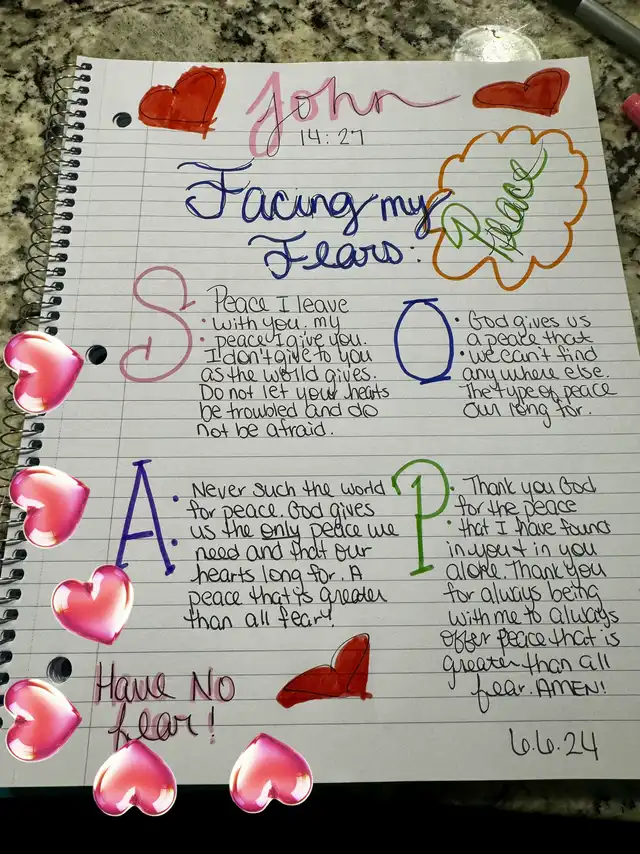 John
14:27
Facing my
Fears:
Peace
S: Peace I leave
with you. my
peace I give you.
I don't give to you
as the world gives.
Do not let your hearts
be troubled and do
not be afraid.
O: God gives us
a peace that
we can't find
any where else.
The type of peace
our long for.
A: Never such the world
for peace. God gives
us the only peace we
need and that our
hearts long for. A
peace that is greater
than all fear!
P: Thank you God
for the peace
that I have found
in you & in you
alone. Thank you
for always being
with me to always
offer peace that is
greater than all
fear. AMEN!
Have NO
fear!
6.6.24